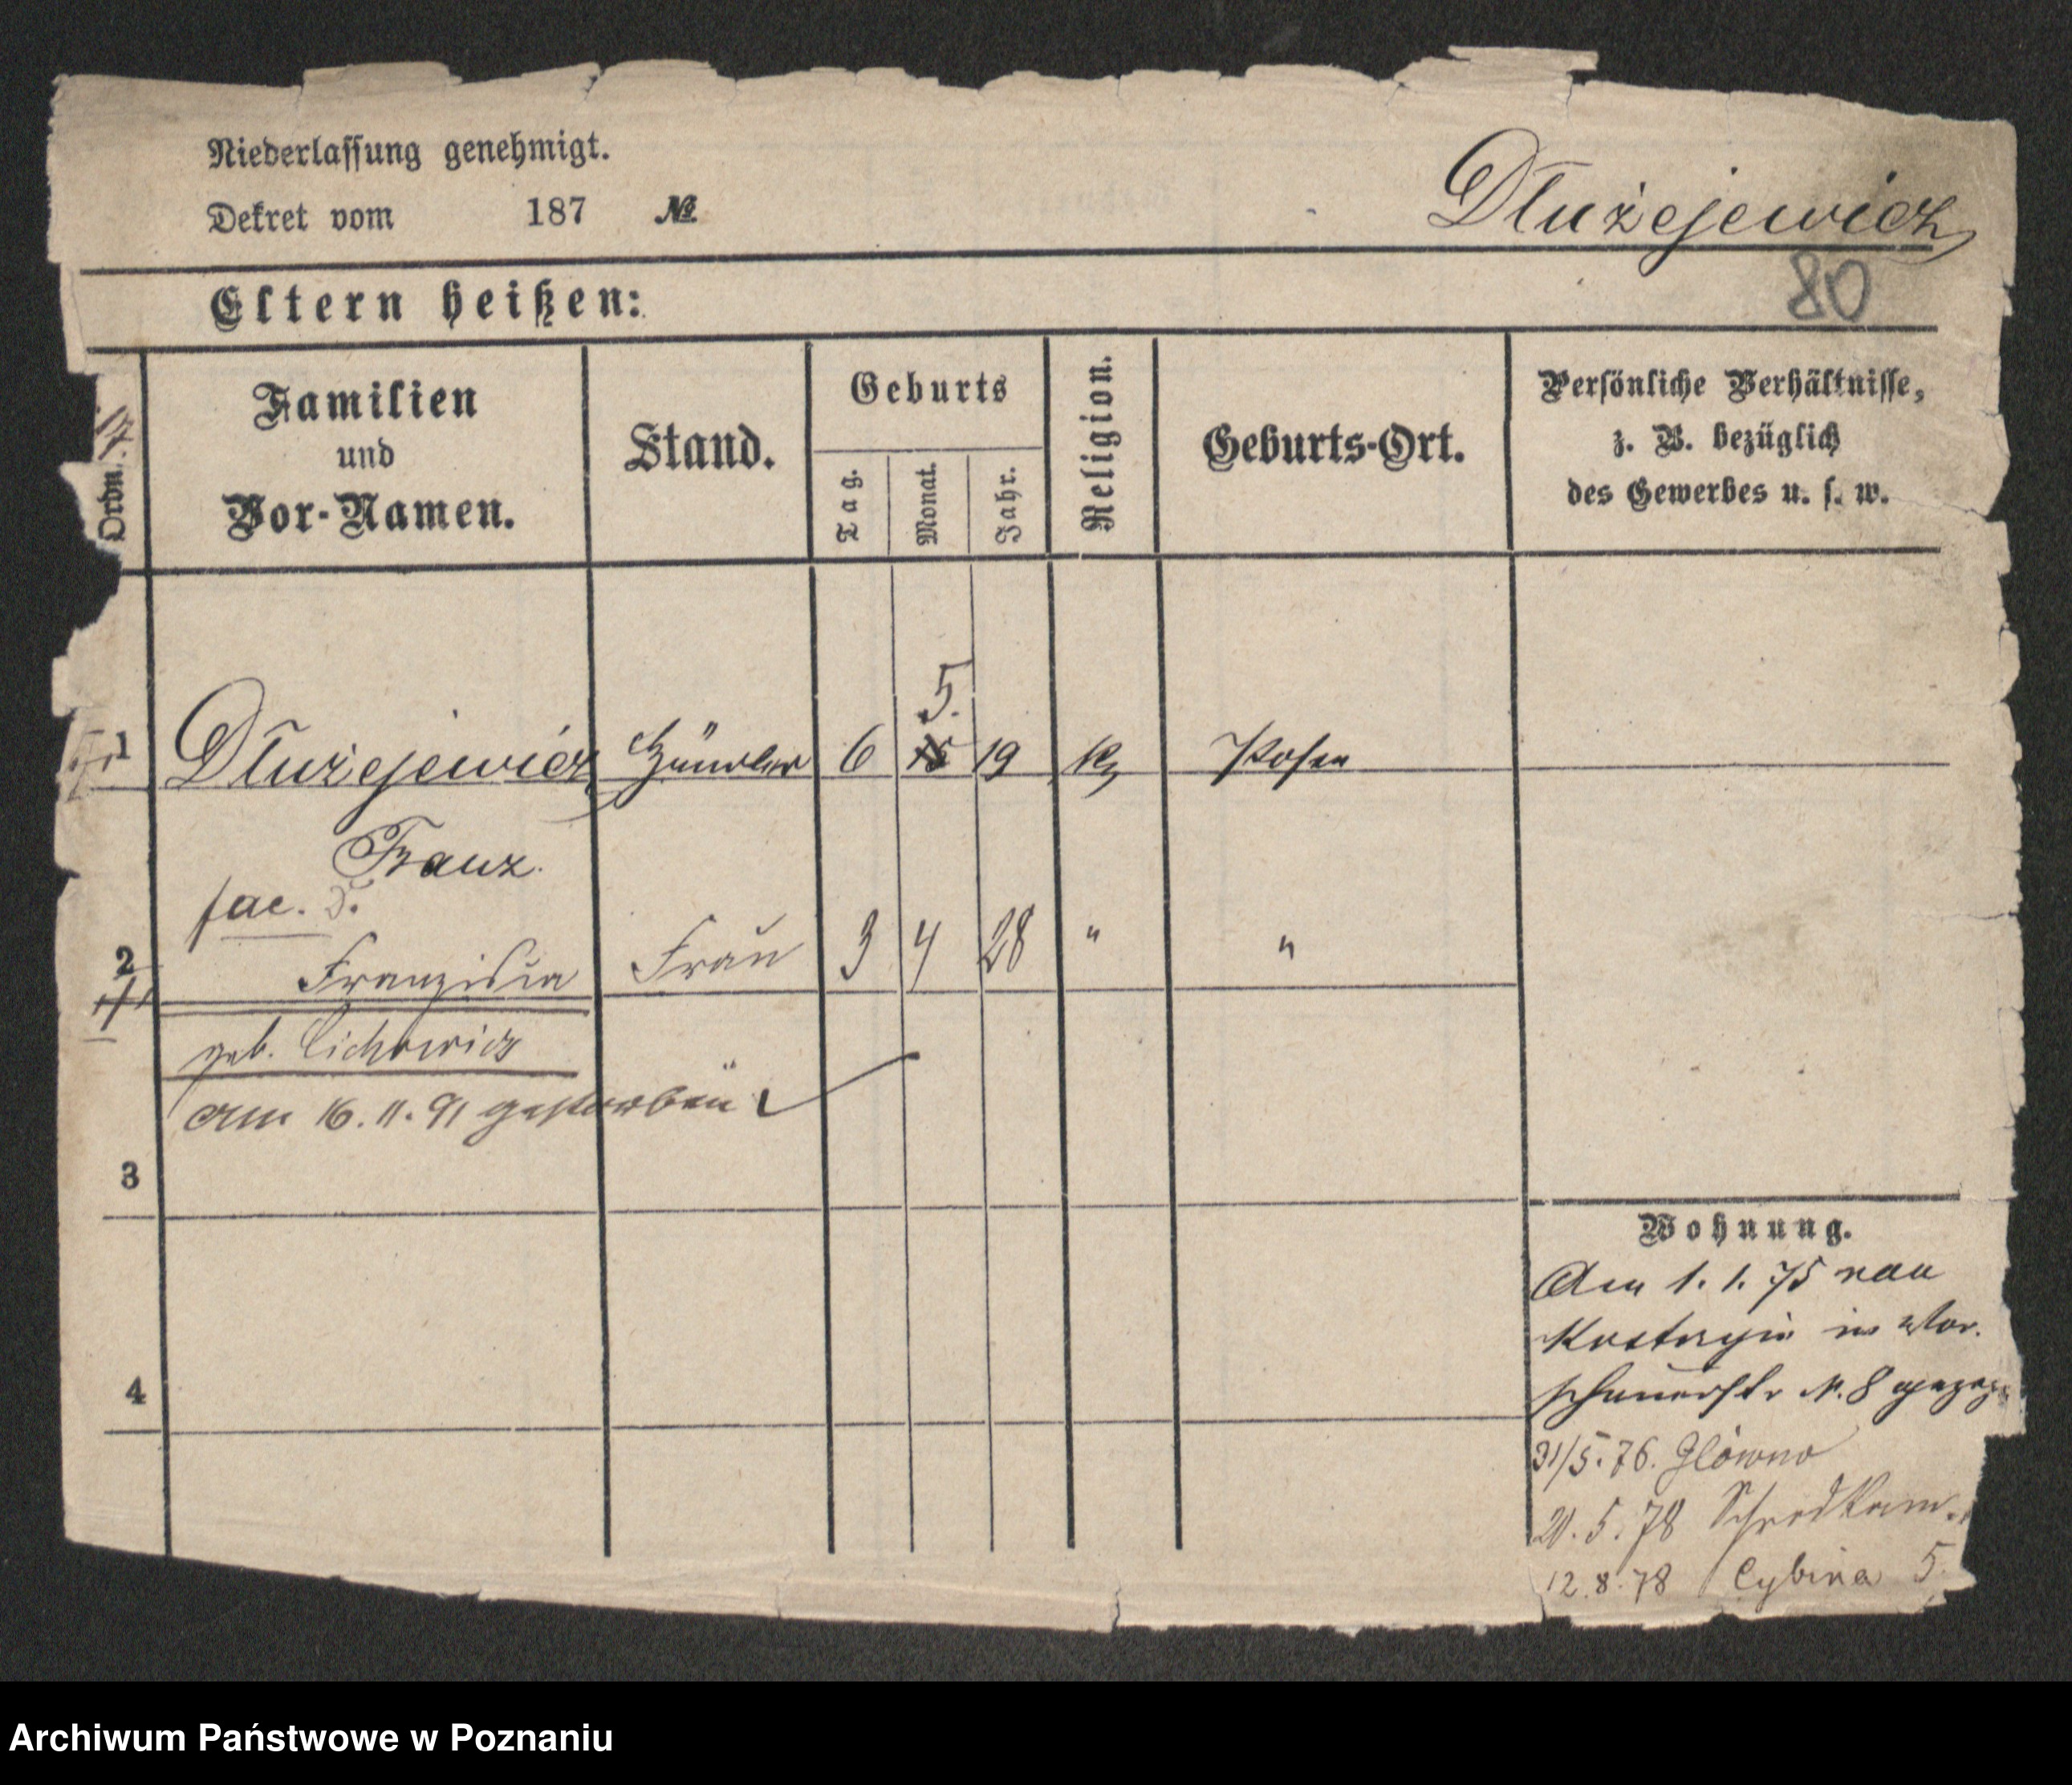 Niederlassung genehmigt.
Dekret vom 187 №
Dłużejewicz
80
Eltern heißen:
Ordn.
Familien
und
Vor-Namen.
Stand.
Geburts
Tag.
Monat.
Jahr.
Religion.
Geburts-Ort.
Persönliche Verhältnisse,
z. B. bezüglich
des Gewerbes u. s. w.
5.
1 Dłużejewicz Händler 6 19 k Posen
Franz.
fac.
2 Franziska Frau 3 4 28 " "
geb. Cichowicz
Am 16.11.91 gestorben
3
4
Wohnung.
Am 1. 1. 75 von
Kostrzyn in War-
schauerstr N. 8
31/5.76. Główno
21.5.78 Schrodkam.
12.8.78 Cybina 5.
Archiwum Państwowe w Poznaniu